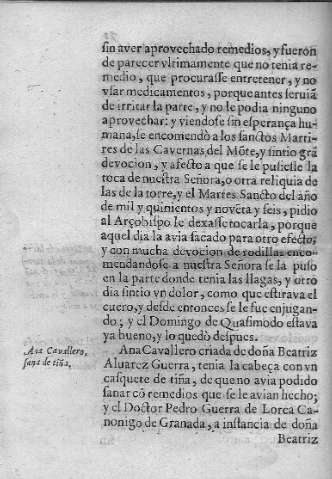 sin aver aprovechado remedios, y fueron
de parecer vltimamente que no tenia re-
medio, que procurasse entretener, y no
vsar medicamentos, porque antes seruiã
de irritar la parte, y no le podia ninguno
aprovechar: y viendose sin esperança hu-
mana, se encomendò a los sanctos Marti-
res de las Cavernas del Mõte, y sintio grã
devocion, y afecto a que se le pusiesse la
toca de nuestra Señora, o otra reliquia de
las de la torre, y el Martes Sancto del año
de mil y quinientos y novẽta y seis, pidio
al Arçobispo le dexasse tocarla, porque
aquel dia la avia sacado para otro efecto,
y con mucha devocion de rodillas enco-
mendandose a nuestra Señora se la puso
en la parte donde tenia las llagas, y otro
dia sintio vn dolor, como que estirava el
cuero, y desde entonces se le fue enjugan-
do; y el Domingo de Quasimodo estava
ya bueno, y lo quedò despues.
Ana Cavallero,
sana de tiña.
Ana Cavallero criada de doña Beatriz
Aluarez Guerra, tenia la cabeça con vn
casquete de tiña, de que no avia podido
sanar cõ remedios que se le avian hecho;
y el Doctor Pedro Guerra de Lorca Ca-
nonigo de Granada, a instancia de doña
Beatriz